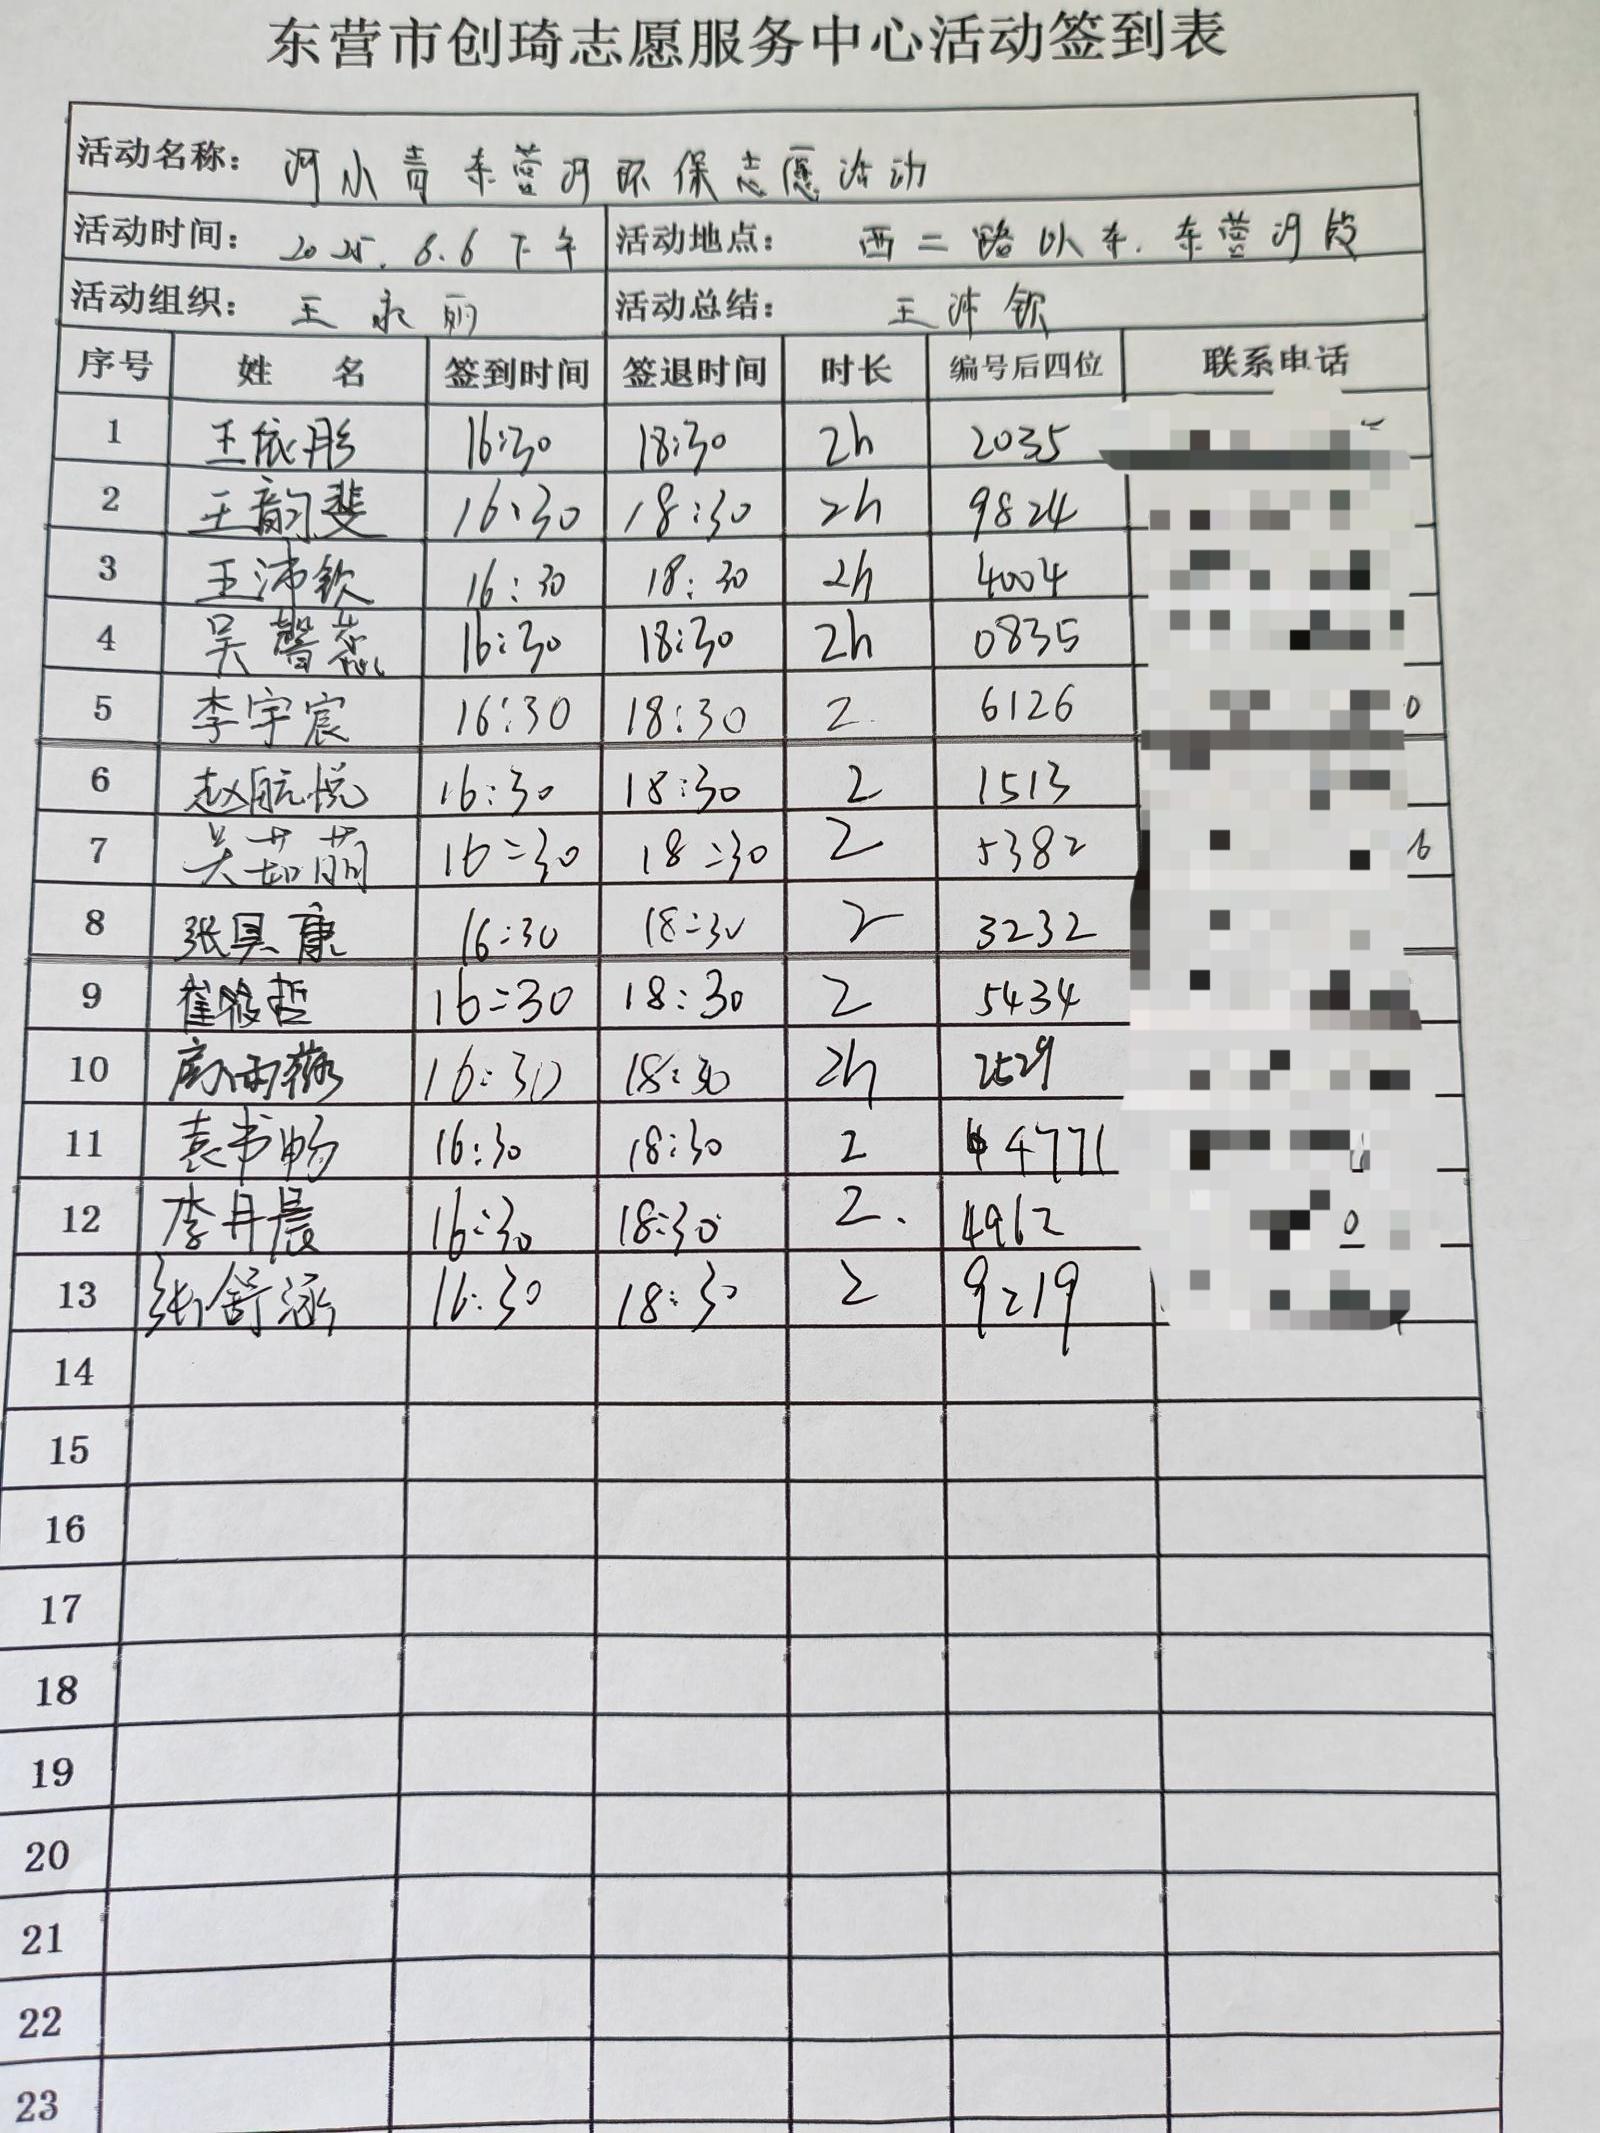 东营市创琦志愿服务中心活动签到表
活动名称: 河小青东营河环保志愿活动
活动时间: 2025.6.6下午 活动地点: 西二路以东.东营河段
活动组织: 王永丽 活动总结: 王沛钦
序号 姓名 签到时间 签退时间 时长 编号后四位 联系电话
1 王依彤 16:30 18:30 2h 2035
2 王韵斐 16:30 18:30 2h 9824
3 王沛钦 16:30 18:30 2h 4004
4 吴馨蕊 16:30 18:30 2h 0835
5 李宇宸 16:30 18:30 2 6126 0
6 赵航悦 16:30 18:30 2 1513
7 吴茹萌 16:30 18:30 2 5382 6
8 张具康 16:30 18:30 2 3232
9 崔 哲 16:30 18:30 2 5434
10 雨 16:30 18:30 2h 2529
11 袁书畅 16:30 18:30 2 4771
12 李月晨 16:30 18:30 2. 4962 0
13 张舒涵 16:30 18:30 2 9219
14
15
16
17
18
19
20
21
22
23